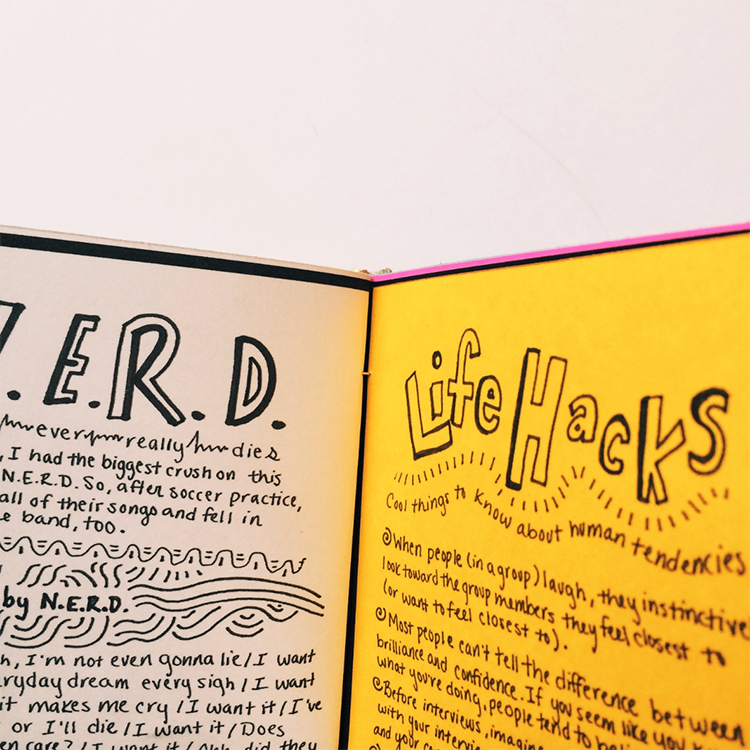 .E.R.D.
ever really dies
, I had the biggest crush on this
N.E.R.D. So, after soccer practice,
all of their songs and fell in
band, too.
by N.E.R.D.
I'm not even gonna lie/I want
dream every sigh/I want
it makes me cry/I want it/I've
or I'll die/I want it/Does
care?/I want it/ did they
Life Hacks
Cool things to know about human tendencies
When people (in a group) laugh, they
look toward the group members they feel closest to
(or want to feel closest to).
Most people can't tell the difference between
brilliance and confidence. If you seem like you know
what you're doing, people tend to
Before interviews,
with your
and your